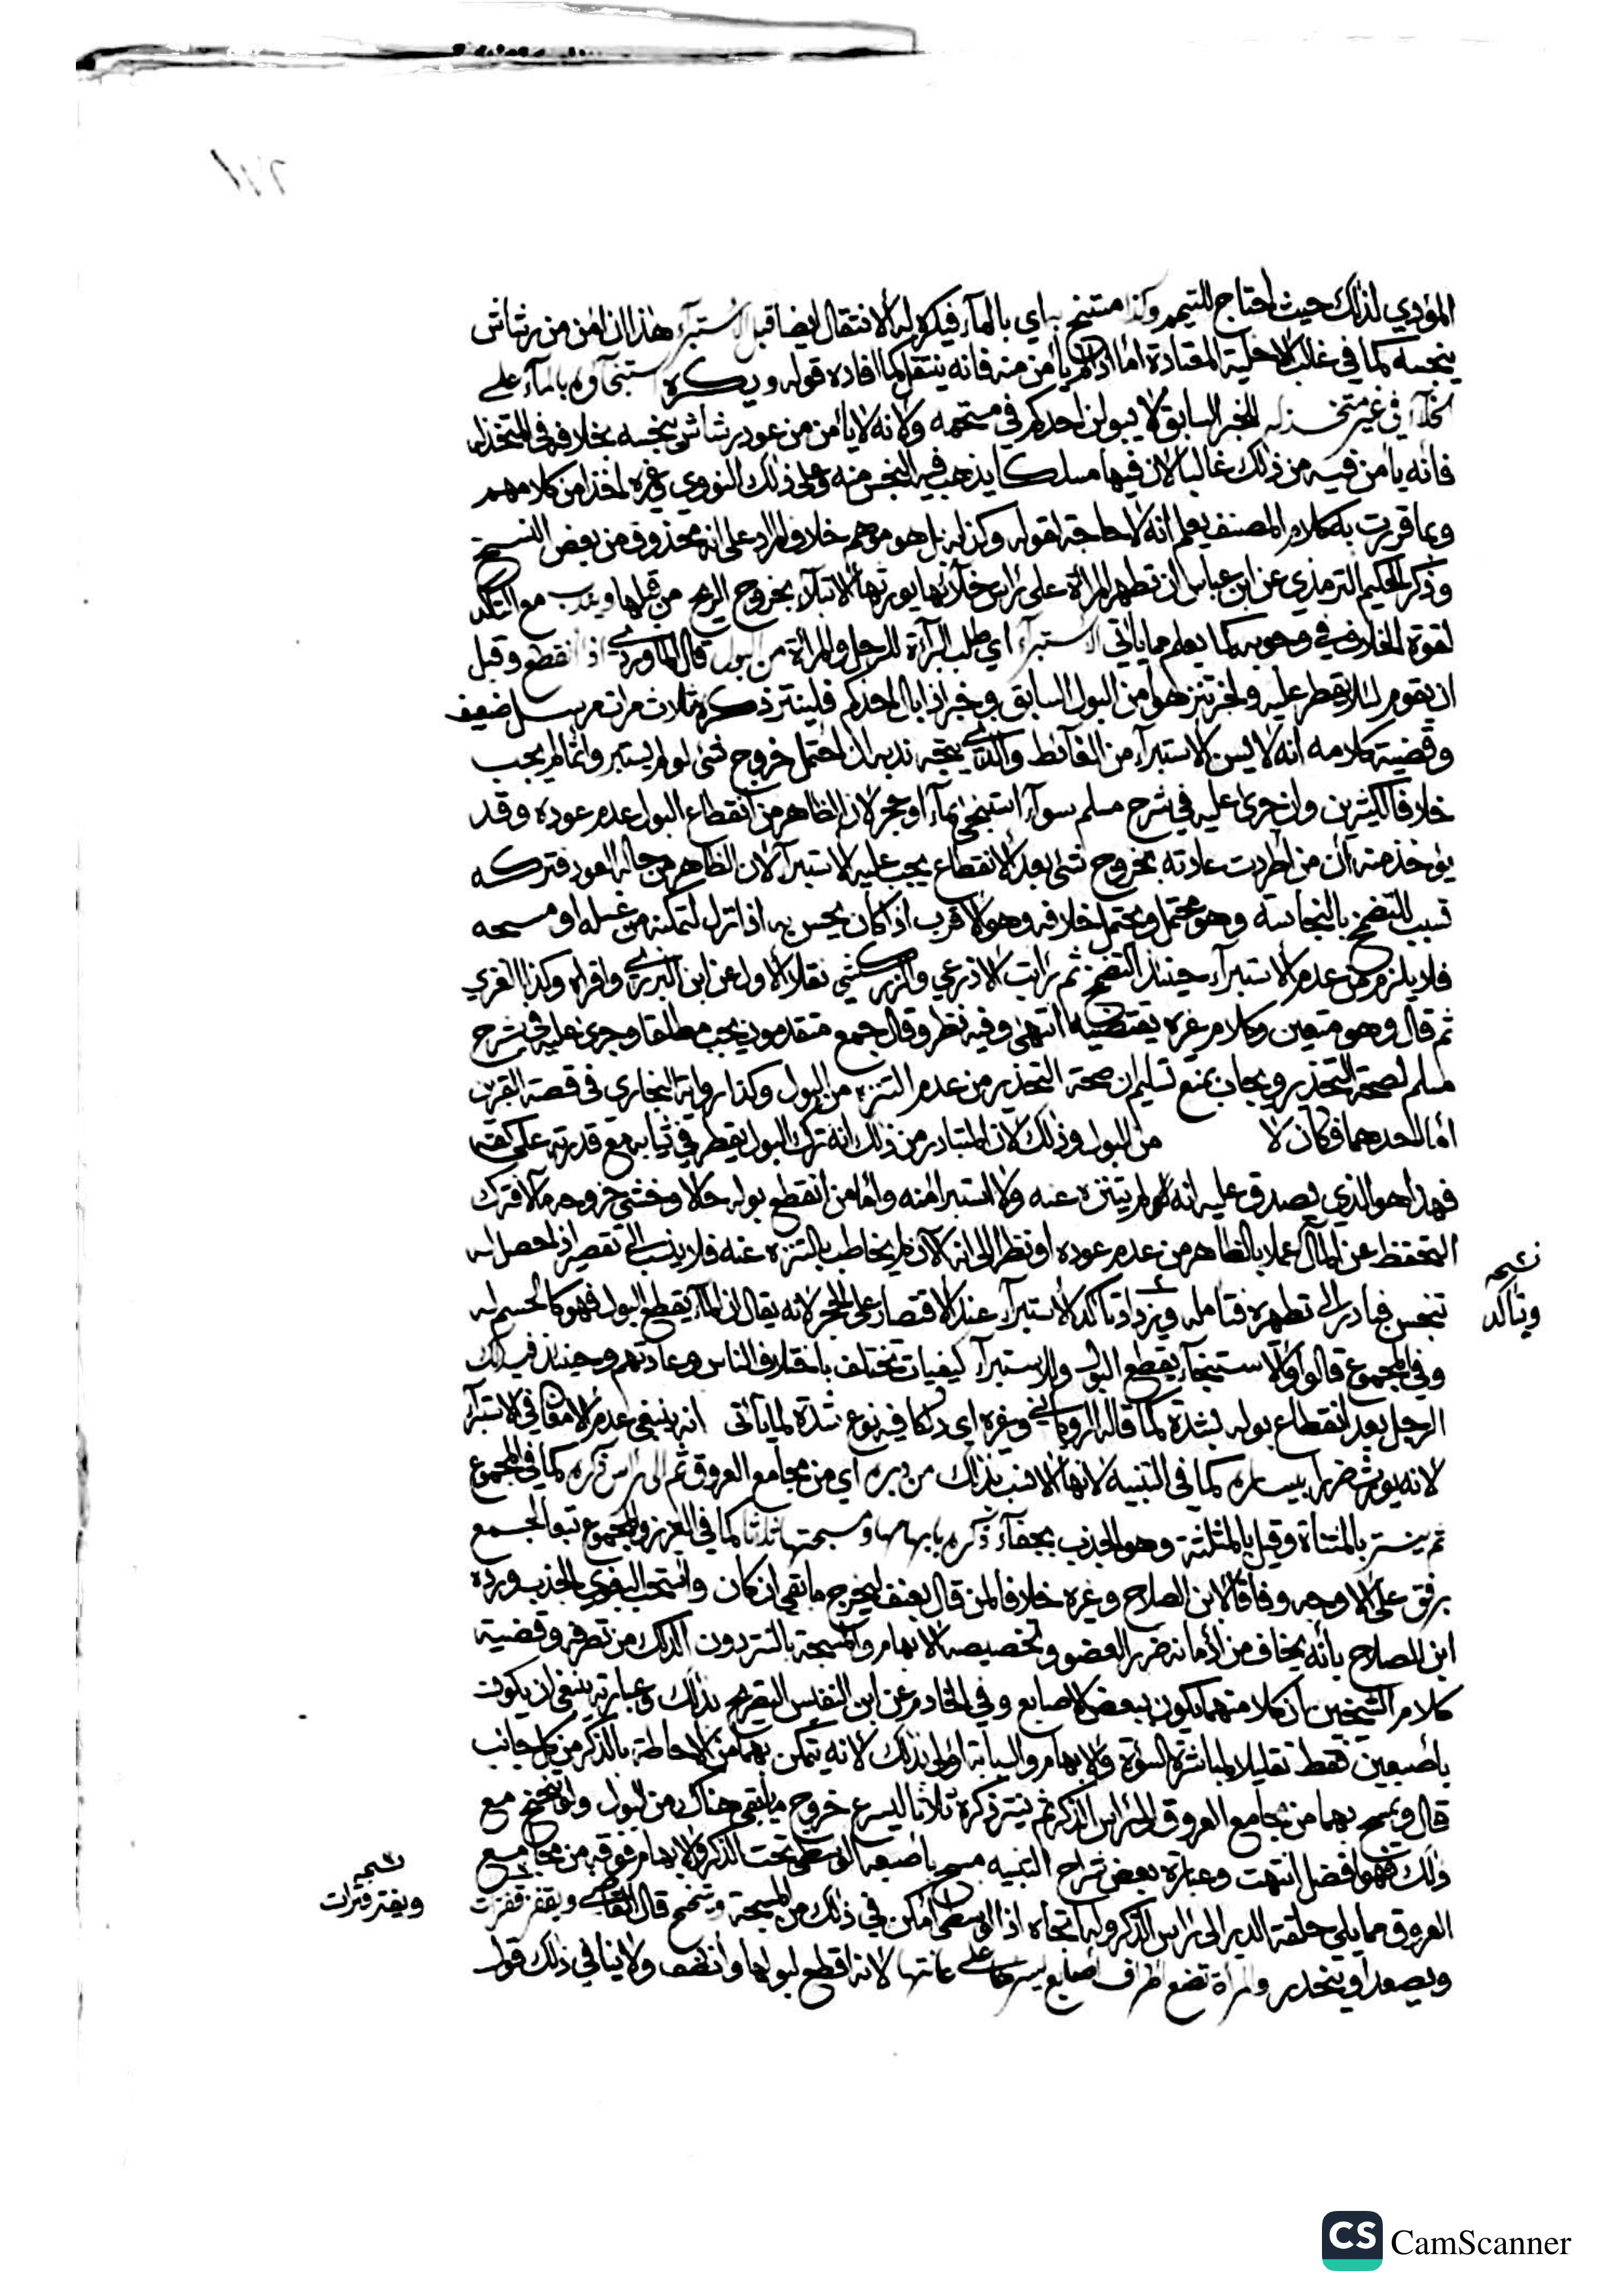 المؤدي لذلك حيث احتاج للتيمم وكذا مستنج به اي بالماء فيكره له الانتقال ايضا قبل الاستبراء هذا ان امن من رشاش
ينجسه كما في غالب الاخلية المعتادة اما اذا لم يامن منه فانه ينتقل كما افاده قوله ويكره استنجاؤه بالماء على
الخلاء في غير متخذ له للخبر السابق لا يبولن احدكم في مستحمه ولانه لا يأمن من عود رشاش ينجسه بخلافه في المتخذ له
فانه يأمن فيه من ذلك غالبا لان فيها مسلكا يذهب فيه النجس منه وعلى ذلك النووي وغيره اخذا من كلامهم
وبما قررت به كلام المصنف يعلم انه لا حاجة لقوله وكذا له بل هو موهم خلاف المراد على انه محذوف من بعض النسخ
وذكر الحكيم الترمذي عن ابن عباس ان تطهر المرأة على راس خلائها يورثها الابتلاء بخروج الريح من قبلها ويندب مع التأكد
لقوة الخلاف في وجوبه كما يعلم مما يأتي الاستبراء اي طلب البراءة للرجل والمرأة من البول قال الماوردي اذا انقطع وقبل
ان يقوم لئلا يقطر عليه ولخبر تنزهوا من البول السابق وخبر اذا بال احدكم فلينتر ذكره ثلاث مرات مرسل ضعيف
وقضية كلامه انه لا يسن الاستبراء من الغائط والذي يتجه ندبه ان احتمل خروج شئ لو لم يستبر وانما لم يجب
خلافا لكثيرين وان جرى عليه في شرح مسلم سواء استنجى بماء او حجر لان الظاهر من انقطاع البول عدم عوده وقد
يؤخذ منه ان من اطردت عادته بخروج شئ بعد الانقطاع يجب عليه الاستبراء لان الظاهر من حاله العود فتركه
تسبب للتضمخ بالنجاسة وهو محتمل ويحتمل خلافه وهو الاقرب اذ كان يحس به اذا نزل لتمكنه من غسله او مسحه
فلا يلزم من عدم الاستبراء حينئذ التضمخ ثم رايت الاذرعي والزركشي نقلا الاول عن ابن البزري واقراه وكذا الغزي
ثم قال وهو متعين وكلام غيره يقتضيه انتهى وفيه نظر وقال جمع متقدمون يجب مطلقا وجرى عليه في شرح
مسلم لصحة التحذير ويجاب بمنع تسليم ان صحة التحذير من عدم التنزه من البول وكذا رواية البخاري في قصة القبرين
اما احدهما فكان لا من البول وذلك لان المتبادر من ذلك انه ترك البول يقطر في ثيابه مع قدرته على كفه
فهذا هو الذي يصدق عليه انه لم يتنزه عنه ولا استبرا منه واما من انقطع بوله حالا وخشي خروجه مآلا فترك
التحفظ عن المآل عملا بالظاهر من عدم عوده او نظرا الى انه الآن لم يخاطب بالتنزه عنه فلا ينسب الى تقصير اذا حصل له
تنجس فبادر الى تطهره فتامله ويزداد تأكد الاستبراء عند الاقتصار على الحجر لانه يقال ان الماء يقطع البول فهو كالحسم له
نسخة
ويتأكد
وفي المجموع قالوا والاستنجاء يقطع البول وللاستبراء كيفيات تختلف باختلاف الناس وعادتهم وحينئذ فيدلك
الرجل بعد انقطاع بوله بشدة كما قاله الروياني وغيره اي دلكا فيه نوع شدة لما يأتي انه ينبغي عدم الامعان في الاستبراء
لانه يورث ضررا بيساره كما في التنبيه لانها الانسب بذلك من دبره اي من مجامع العروق ثم الى راس ذكره كما في المجموع
ثم ينتر بالمثناة وقيل بالمثلثة وهو الجذب بجفاء ذكره بابهامها ومسبحتها ثلاثا كما في العزيز والمجموع تبعا لجمع
برفق على الاوجه وفاقا لابن الصلاح وغيره خلافا لمن قال بعنف ليخرج ما بقي ان كان واستحب البغوي الجذب ورده
ابن الصلاح بأنه يخاف من ادمانه ضرر العضو وتخصيصه الابهام والمسبحة بالنتر دون الدلك من تصرفه وقضية
كلام الشيخين بأن كلا منهما يكون ببعض الاصابع وفي الخادم عن ابن النفيس التصريح بذلك وعبارته ينبغي ان يكون
باصبعين فقط تقليلا لمباشرة السؤة والابهام والسبابة اولى بذلك لانه يتمكن بهما من الاحاطة بالذكر من كل جانب
قال ويمسح بهما من مجامع العروق الى راس الذكر ثم ينتر ذكره ثلاثا ليسرع خروج ما بقي هناك من البول ولو تنحنح مع
ذلك فهو افضل انتهت وعبارة بعض شراح التنبيه مسح بأصبعه الوسطى تحت الذكر والابهام فوقه من مجامع
العروق مما يلي حلقة الدبر الى راس الذكر وله اتجاه اذ الوسطى امكن في ذلك من المسبحة وتنحنح قال القاضي ويقفز قفزات
نسخة
ويفتر فترات
ويصعد او ينحدر والمرأة تضع اطراف اصابع يسراها على عانتها لانه اقطع لبولها وانظف ولا ينافي ذلك قول
CS CamScanner